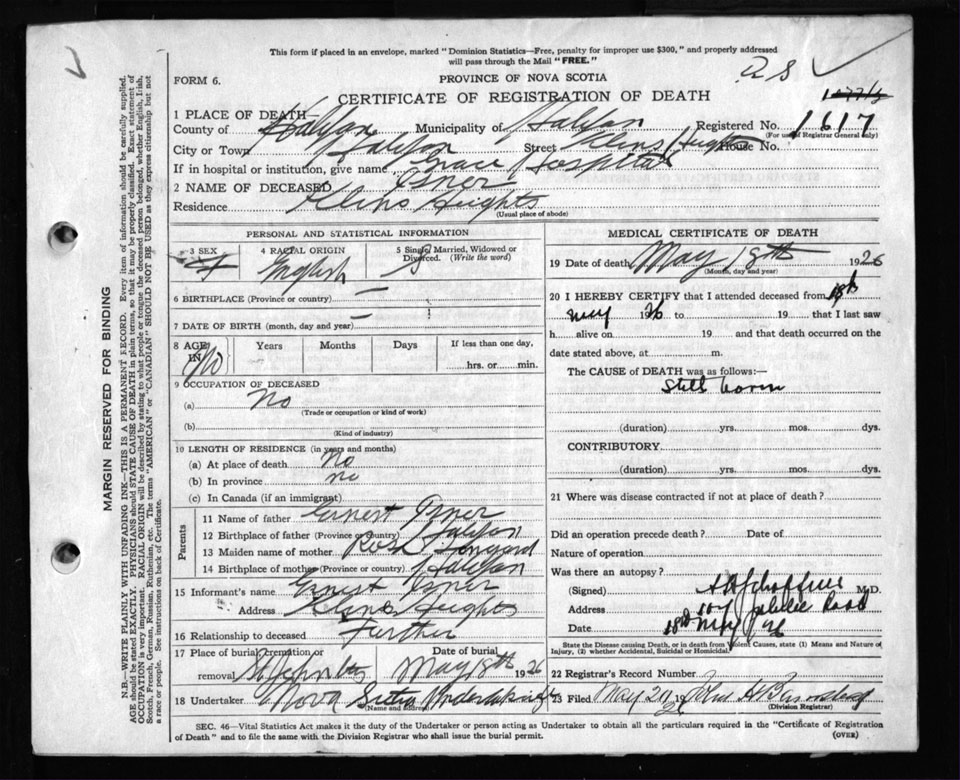 This form if placed in an envelope, marked "Dominion Statistics—Free, penalty for improper use $300," and properly addressed
will pass through the Mail "FREE."
FORM 6.
PROVINCE OF NOVA SCOTIA
CERTIFICATE OF REGISTRATION OF DEATH
1 PLACE OF DEATH
County of Halifax Municipality of Halifax Registered No. 1617
(For use of Registrar General only)
City or Town Halifax Street Kline Heights House No.
If in hospital or institution, give name Grace Hospital
2 NAME OF DECEASED Isner
Residence Kline Heights
(Usual place of abode)
PERSONAL AND STATISTICAL INFORMATION
3 SEX 4 RACIAL ORIGIN 5 Single, Married, Widowed or Divorced. (Write the word)
English S
6 BIRTHPLACE (Province or country) —
7 DATE OF BIRTH (month, day and year) —
8 AGE IN No Years Months Days If less than one day,
hrs. or min.
9 OCCUPATION OF DECEASED
(a) No
(Trade or occupation or kind of work)
(b)
(Kind of industry)
10 LENGTH OF RESIDENCE (in years and months)
(a) At place of death No
(b) In province no
(c) In Canada (if an immigrant)
Parents
11 Name of father Ernest Isner
12 Birthplace of father (Province or Country) Halifax
13 Maiden name of mother Rose
14 Birthplace of mother (Province or Country) Halifax
15 Informant's name Ernest Isner
Address Kline Heights
16 Relationship to deceased Farther
17 Place of burial, cremation or removal Date of burial
May 18th 1926
18 Undertaker Nova Scotia Undertaking
(Name and address)
MEDICAL CERTIFICATE OF DEATH
19 Date of death May 18th 1926
(Month, day and year)
20 I HEREBY CERTIFY that I attended deceased from 18th
May 1926 to 19 that I last saw
h alive on 19 and that death occurred on
date stated above, at m.
The CAUSE of DEATH was as follows:—
Still born
(duration) yrs. mos. dys.
CONTRIBUTORY
(duration) yrs. mos. dys.
21 Where was disease contracted if not at place of death?
Did an operation precede death? Date of
Nature of operation
Was there an autopsy?
(Signed) M.D.
Address 104 Jubilee Road
Date 18th May 26
State the Disease causing Death, or in death from Violent Causes, state (1) Means and Nature of
Injury, (2) whether Accidental, Suicidal or Homicidal.
22 Registrar's Record Number
23 Filed May 20 1926 John A
(Division Registrar)
SEC. 46—Vital Statistics Act makes it the duty of the Undertaker or person acting as Undertaker to obtain all the particulars required in the "Certificate of Registration
of Death" and to file the same with the Division Registrar who shall issue the burial permit. (OVER)
MARGIN RESERVED FOR BINDING
N.B.—WRITE PLAINLY WITH UNFADING INK—THIS IS A PERMANENT RECORD. Every item of information should be carefully supplied.
AGE should be stated EXACTLY. PHYSICIANS should STATE CAUSE OF DEATH in plain terms, so that it may be properly classified. Exact statement of
OCCUPATION is very important. RACIAL ORIGIN will be described by stating to what people or tongue the deceased person belonged, whether English, Irish,
Scotch, French, German, Russian, Ruthenian, etc. The terms "AMERICAN" or "CANADIAN" SHOULD NOT BE USED as they express citizenship but not
a race or people. See instructions on back of Certificate.